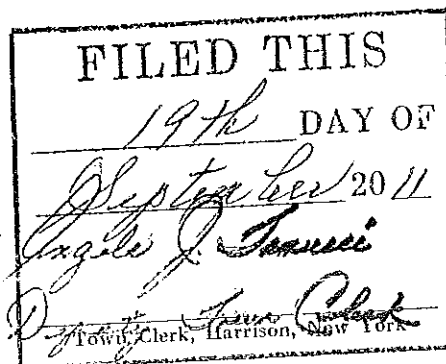 FILED THIS
19th DAY OF
September 20 11
Angela J.
Deputy Town Clerk
Town Clerk, Harrison, New York